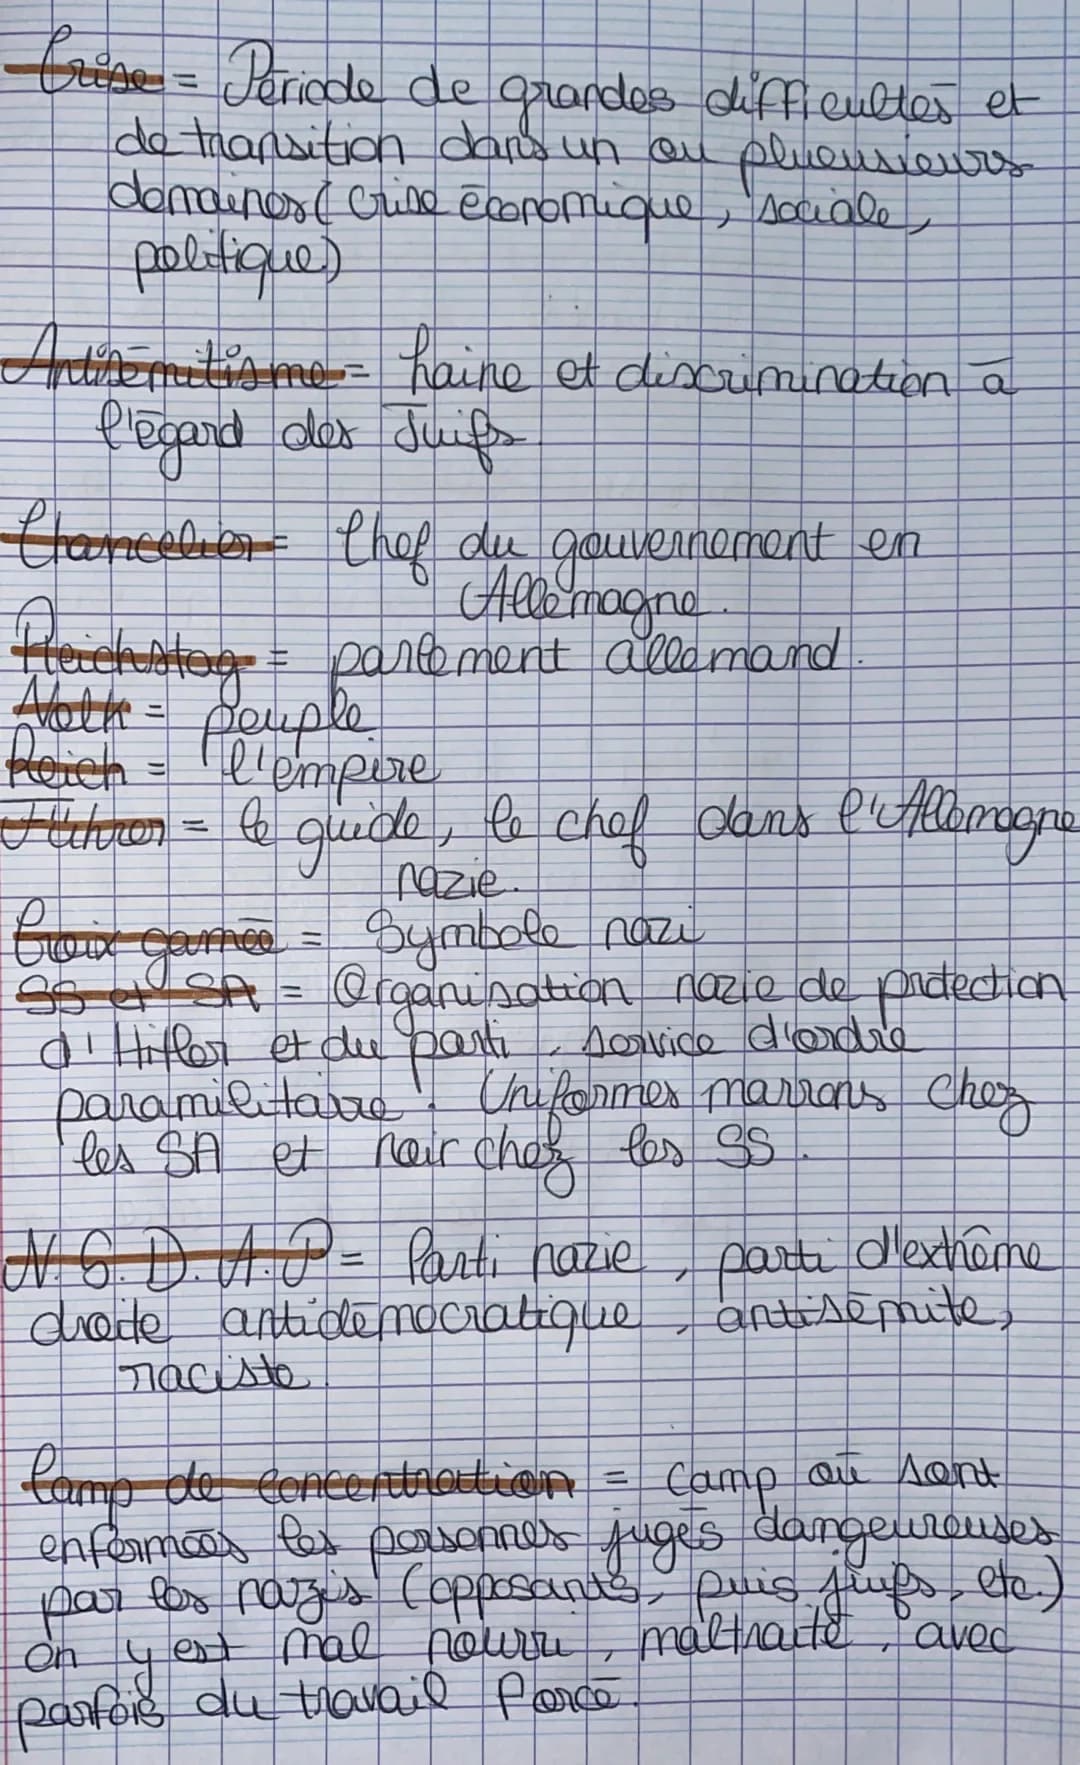 Crise = Période de grandes difficultés et
de transition dans un ou pluousieurs
domaines ( crise économique, sociale,
politique)
Antisémitisme = haine et discrimination à
l'égard des Juifs
Chancelier = Chef du gouvernement en
Allemagne.
Reichstag = parlement allemand.
Volk = peuple
Reich = l'empire
Führer = le guide, le chef dans l'Allemagne
nazie.
Croix gamée = Symbole nazi
SS et SA = Organisation nazie de protection
d'Hitler et du parti, service d'ordre
paramilitaire. Uniformes marrons chez
les SA et noir chez les SS.
N.S.D.A.P = Parti nazie, parti d'extrême
droite antidémocratique, antisémite,
raciste.
Camp de concentration = camp où sont
enfermées les personnes jugés dangeureuses
par les nazis (opposants, puis juifs, etc.)
on y est mal nourri, maltraité, avec
parfois du travail forcé.